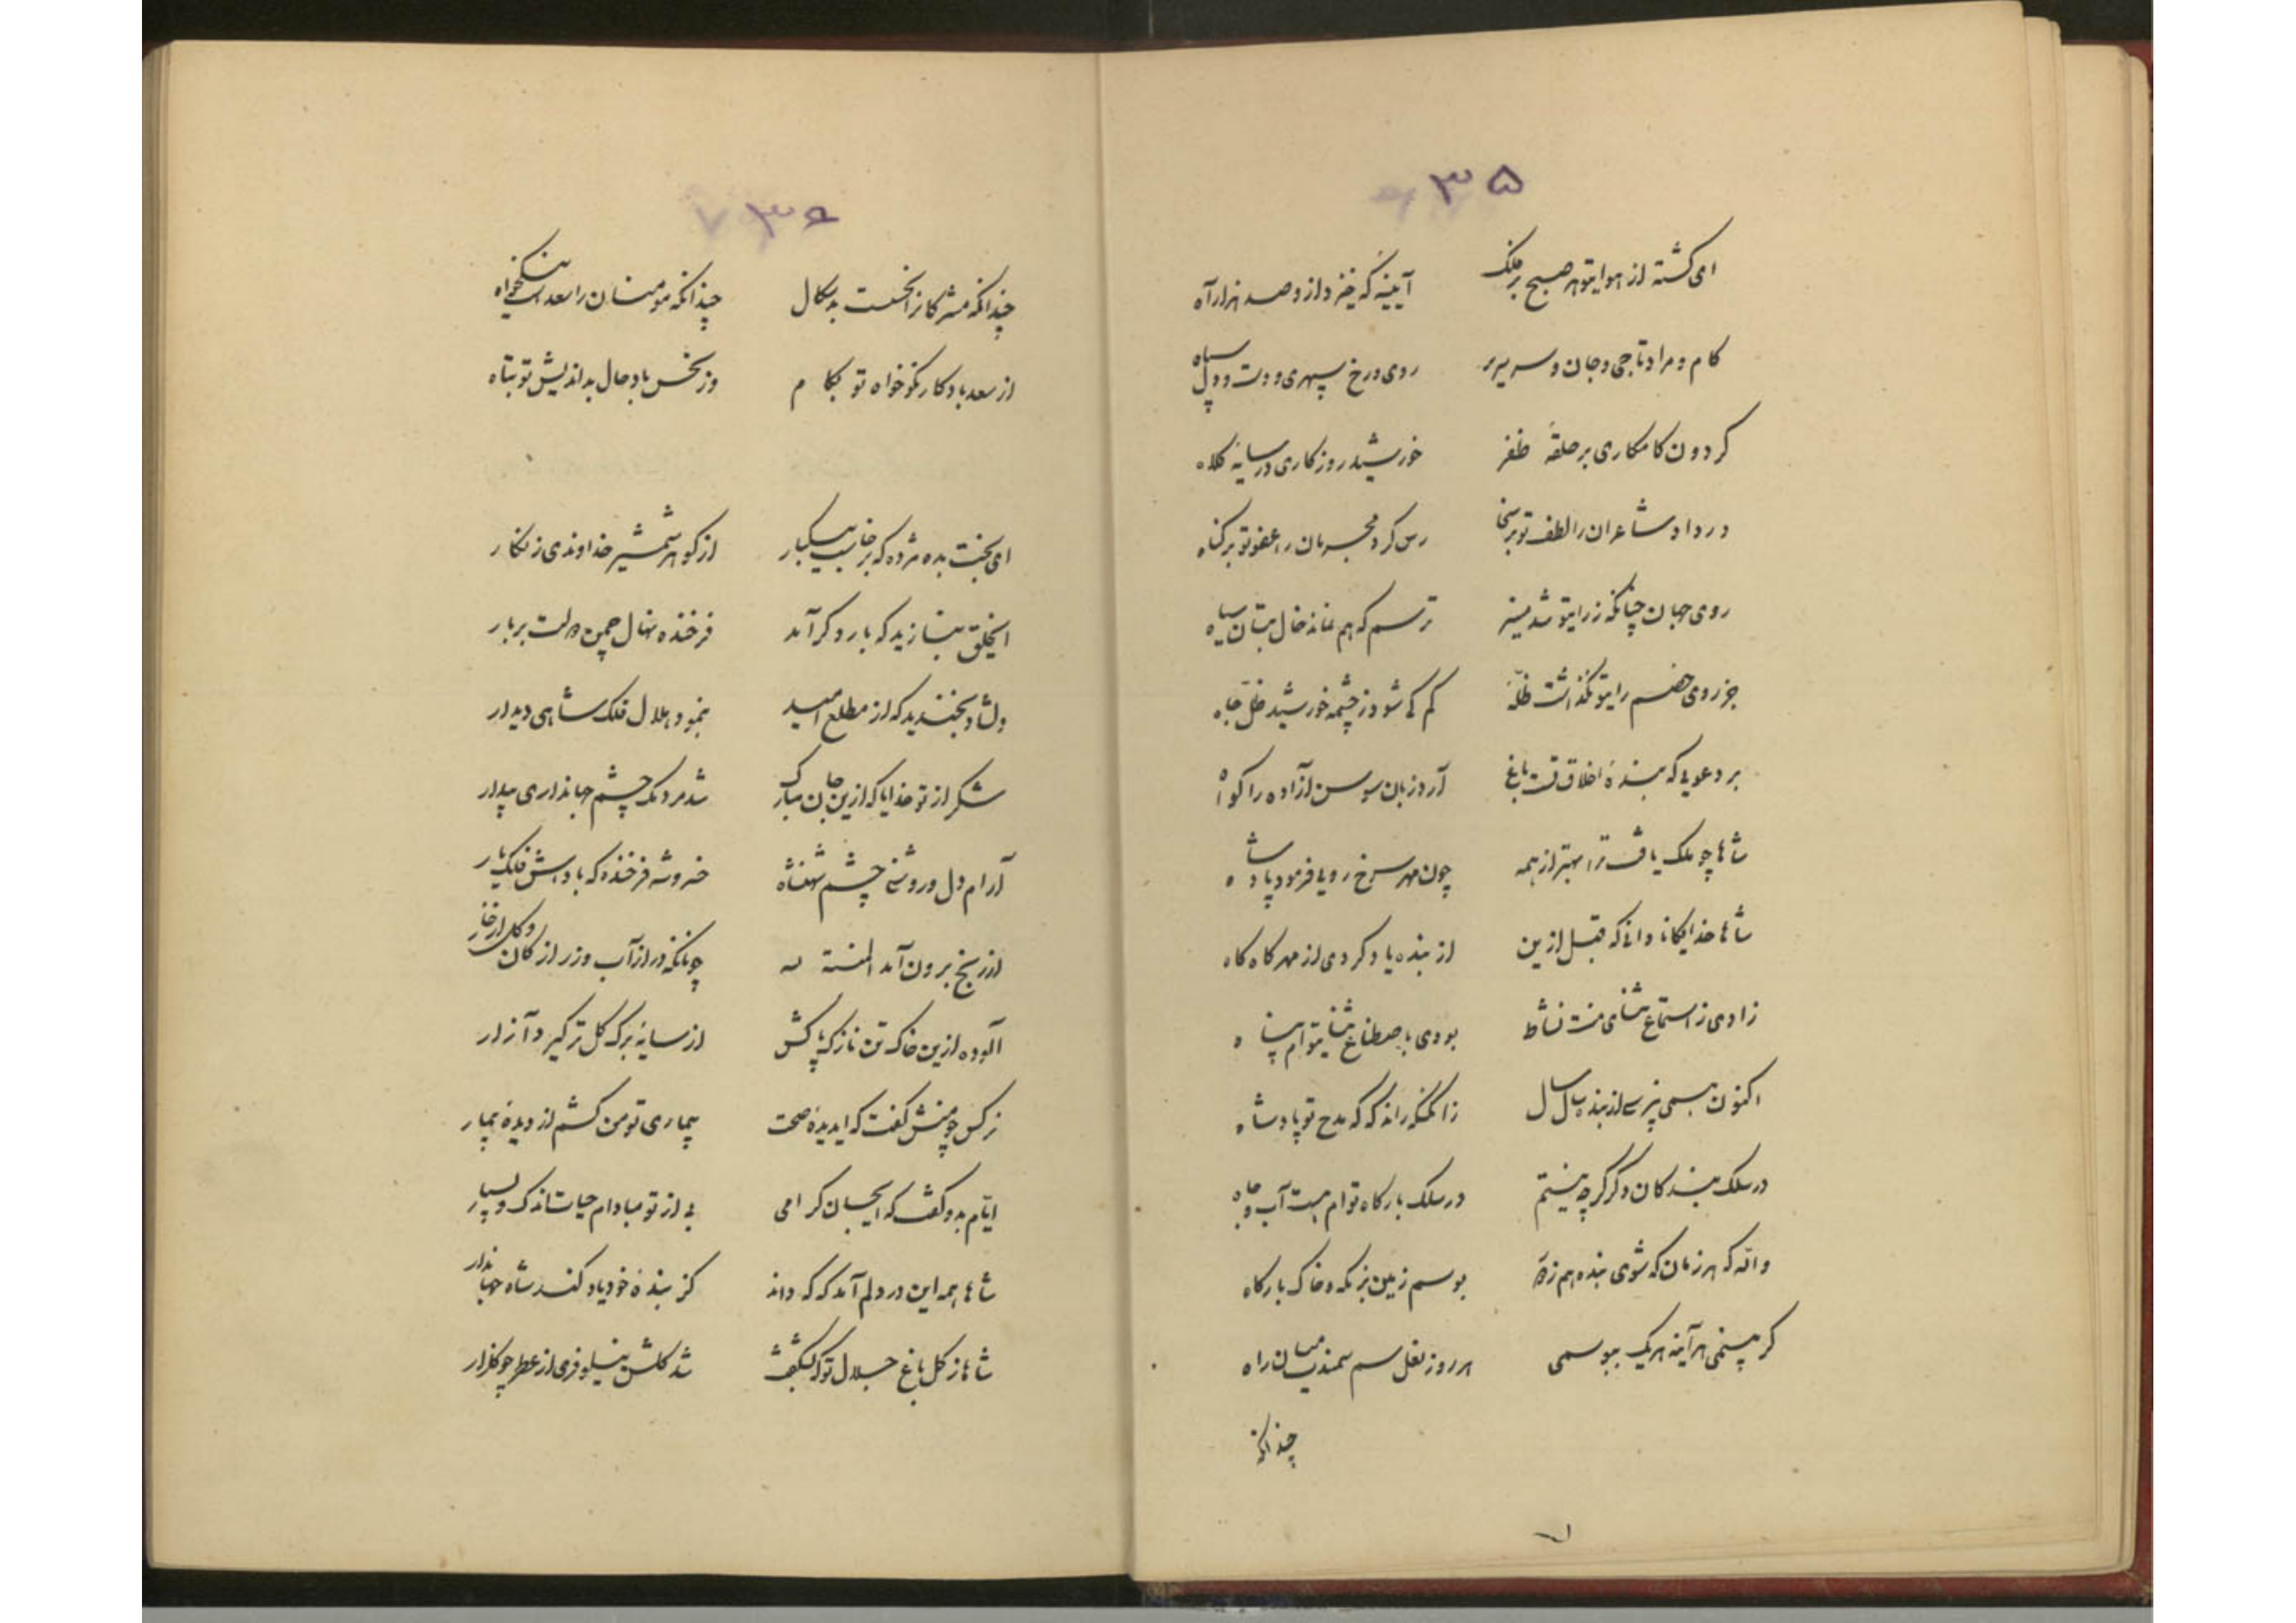 ۳۵
ای گشته از هوایتو هر صبح بر فلک آیینه که خیزد از و صد هزار آه
کام و مراد تاجی و جان و سریر روی و رخ سپهری و دست و دل سپاه
کردون کامکاری بر حلقهٔ ظفر خورشید روزکاری در سایهٔ کلاه
در داد شاعران را لطف تو بر سخا رس کرد مجرمان را عفو تو بر کناه
روی جهان چنانکه ز رایتو شد منیر ترسم که هم نماند خال بتان سیاه
جز روی خصم رایتو نکذاشت ظلمة کم کی شود ز چشمه خورشید ظل چاه
بر دعویی که بندهٔ اخلاق تست باغ آرد زبان سوسن آزاده را کواه
شاها چو ملک یافت ترا بهتر از همه چون مهر سرخ رویی فرمود پادشاه
شاها خدایکانا دانی که قبل ازین از بنده یاد کردی از مهر کاه کاه
زادی ز استماع ثنای منت نشاط بودی باصطناع ثنایتوام پناه
اکنون همی نپرسی از بنده سال سال زا کنکه راند که که مدح تو پادشاه
در سلک بندکان دکر کر چه نیستم در سلک بارکاه توام هست آب و جاه
والله که هر زمان که شوی بنده هم زه بوسم زمین بزمکه و خاک بارکاه
کر بینمی هر آینه هر یک ببوسمی هر روز نعل سم سمندت میان راه
چندانکه
۳۶
چندانکه مشرکانرا نحست بد سکال چندانکه مومنان را سعد است نیکخواه
از سعد باد کار نکوخواه تو بکام وز نحس باد حال بداندیش تو تباه
ای بخت بده مژده که برخاست بیکبار از کوهر شمشیر خداوندی زنکار
ایخلق بنازید که بار دکر آمد فرخنده نهال چمن دولت بر بار
دلشاد بخندید که از مطلع امید بنمود هلال فلک شاهی دیدار
شکر از تو خدایا که ازین جان مبارک شد مردمک چشم جهانداری بیدار
آرام دل و روشنی چشم شهنشاه خسرو شه فرخنده که بادش فلک یار
از رنج برون آمد المنة لله چونانکه در از آب و زر از کان و کل از خار
آلوده ازین خاک تن نازک پاکش از سایهٔ برک کل تر کیرد آزار
نرکس چو منش کفت که ایدیدهٔ صحت بیماری تو من کشم از دیدهٔ بیمار
ایام بدو کفت که ایجان کرامی بی از تو مبادام حیات اندک و بسیار
شاها همه این در دلم آمد که که داند کز بندهٔ خود یاد کند شاه جهاندار
شاها ز کل باغ جلال تو که بشکفت شد کلشن نیلوفری از عطر چو کلزار